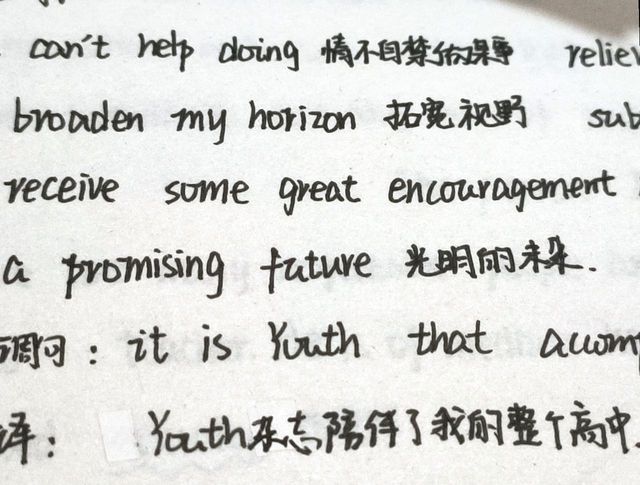 can't help doing 情不自禁做某事 relie
broaden my horizon 拓宽视野 sub
receive some great encouragement
a promising future 光明的未来.
调句: it is Youth that accom
译: Youth杂志陪伴了我的整个高中.